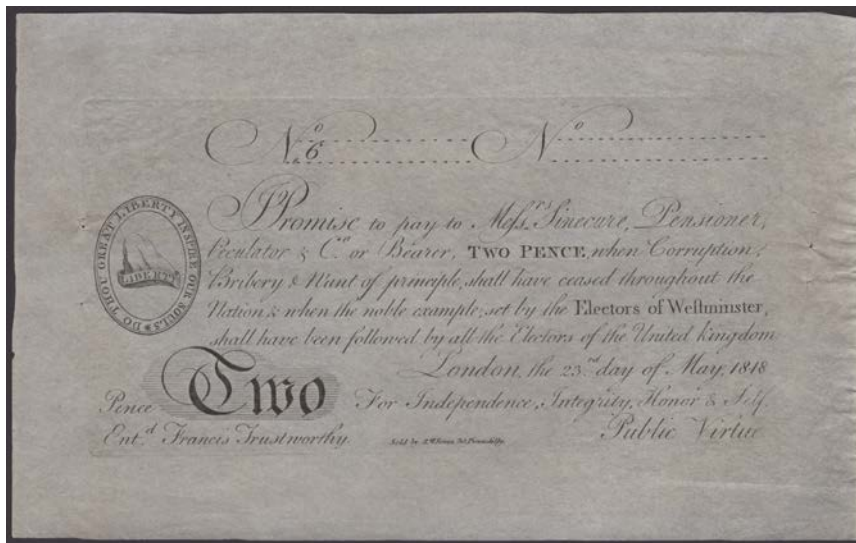 No. 6 No.
DO THOU GREAT LIBERTY INSPIRE OUR SOULS
LIBERTY
I Promise to pay to Messrs. Sinecure, Pensioner,
Peculator & Co. or Bearer, TWO PENCE, when Corruption,
Bribery & Want of principle, shall have ceased throughout the
Nation, & when the noble example, set by the Electors of Westminster,
shall have been followed by all the Electors of the United kingdom
London, the 23rd. day of May, 1818
Pence Two For Independence, Integrity, Honor & Self.
Entd. Francis Trustworthy. Sold by Public Virtue